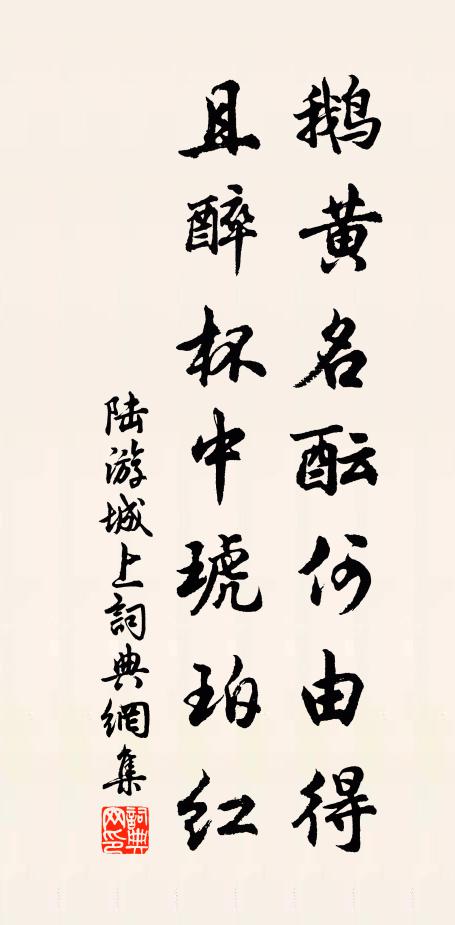 鹅黄名酝何由得
且醉杯中琥珀红
陆游城上詞典網集
詞典网印